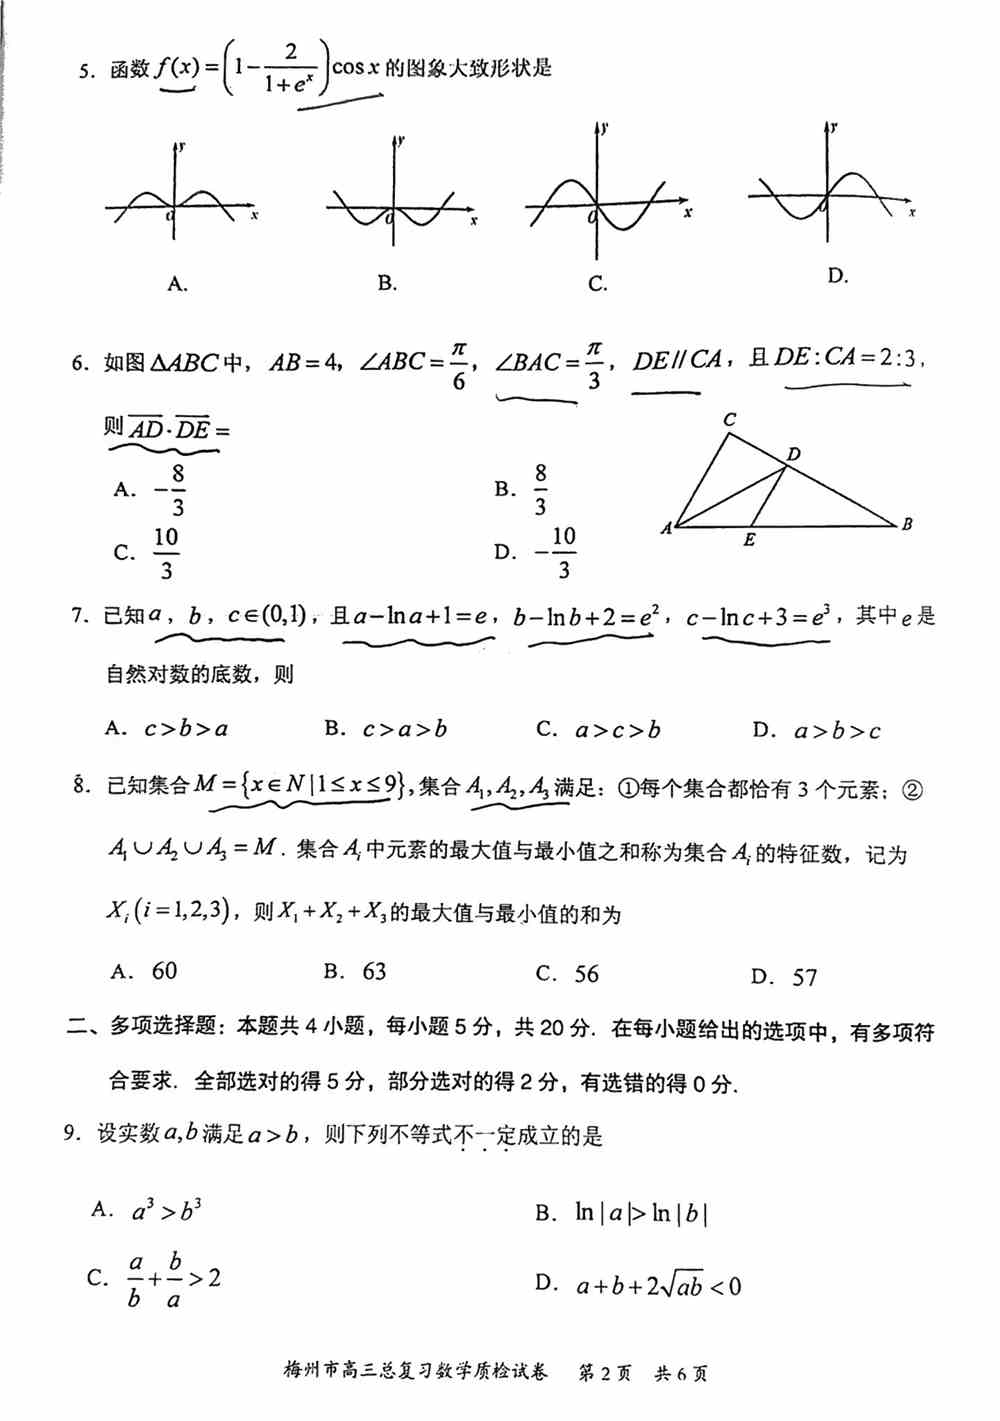 5. 函数 f(x)=(1-2/(1+e^x))cosx 的图象大致形状是
y y y y
O x O x O x O x
A. B. C. D.
6. 如图 ΔABC 中, AB=4, ∠ABC=π/6, ∠BAC=π/3, DE//CA, 且 DE:CA=2:3,
则 \overline{AD}·\overline{DE}=
A. -8/3 B. 8/3
C. 10/3 D. -10/3
C
D
A E B
7. 已知 a, b, c∈(0,1), 且 a-lna+1=e, b-lnb+2=e², c-lnc+3=e³, 其中 e 是
自然对数的底数, 则
A. c>b>a B. c>a>b C. a>c>b D. a>b>c
8. 已知集合 M={x∈N|1≤x≤9}, 集合 A₁,A₂,A₃ 满足: ①每个集合都恰有 3 个元素; ②
A₁∪A₂∪A₃=M. 集合 Aᵢ 中元素的最大值与最小值之和称为集合 Aᵢ 的特征数, 记为
Xᵢ(i=1,2,3), 则 X₁+X₂+X₃ 的最大值与最小值的和为
A. 60 B. 63 C. 56 D. 57
二、多项选择题: 本题共 4 小题, 每小题 5 分, 共 20 分. 在每小题给出的选项中, 有多项符
合要求. 全部选对的得 5 分, 部分选对的得 2 分, 有选错的得 0 分.
9. 设实数 a,b 满足 a>b, 则下列不等式不一定成立的是
A. a³>b³ B. ln|a|>ln|b|
C. a/b+b/a>2 D. a+b+2√ab<0
梅州市高三总复习数学质检试卷 第 2 页 共 6 页